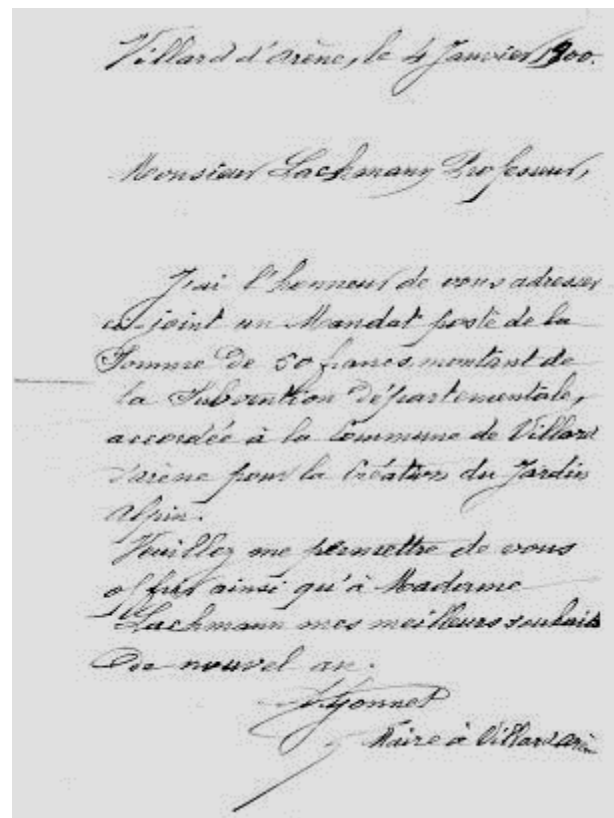 Villard d'Arène, le 4 Janvier 1900.
Monsieur Lachmann Professeur,
J'ai l'honneur de vous adresser
ci-joint un Mandat poste de la
Somme de 50 francs, montant de
la Subvention départementale,
accordée à la Commune de Villard
d'arène pour la Création du Jardin
Alpin.
Veuillez me permettre de vous
offrir ainsi qu'à Madame
Lachmann mes meilleurs souhaits
de nouvel an.
Maire à Villard